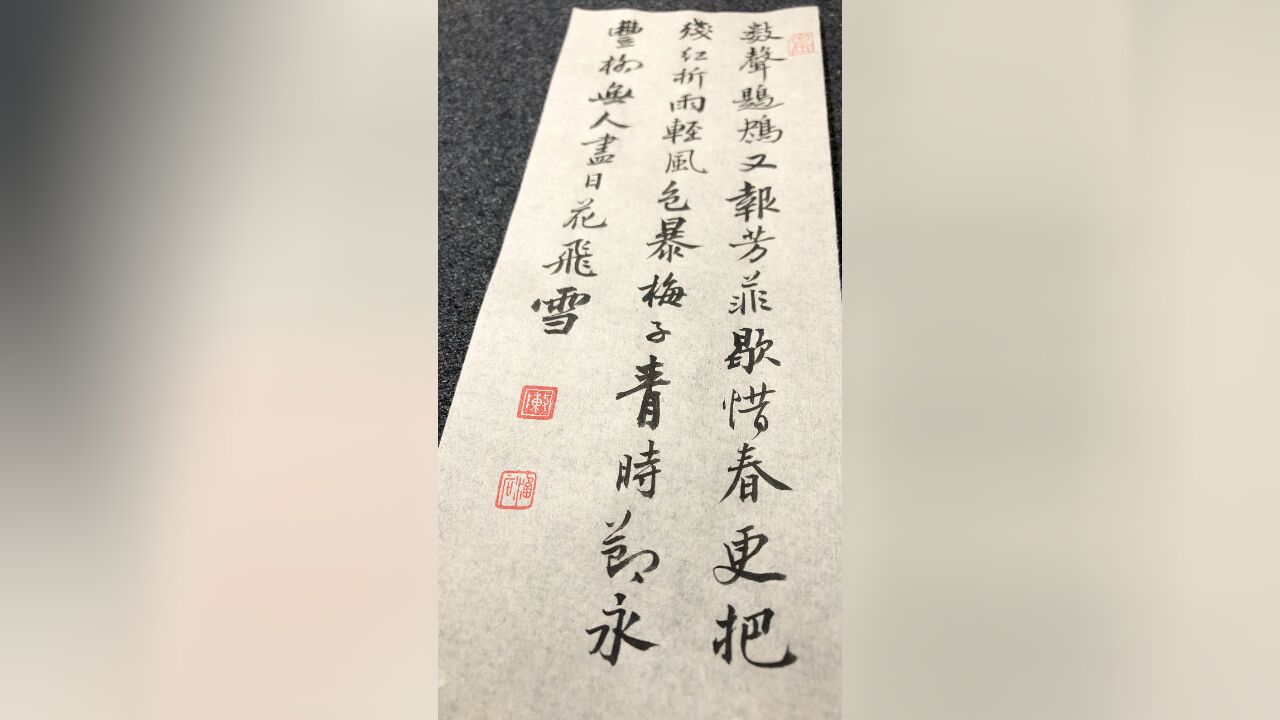 數聲鶗鴂又報芳菲歇惜春更把
殘紅折雨輕風色暴梅子青時節永
豐柳無人盡日花飛雪